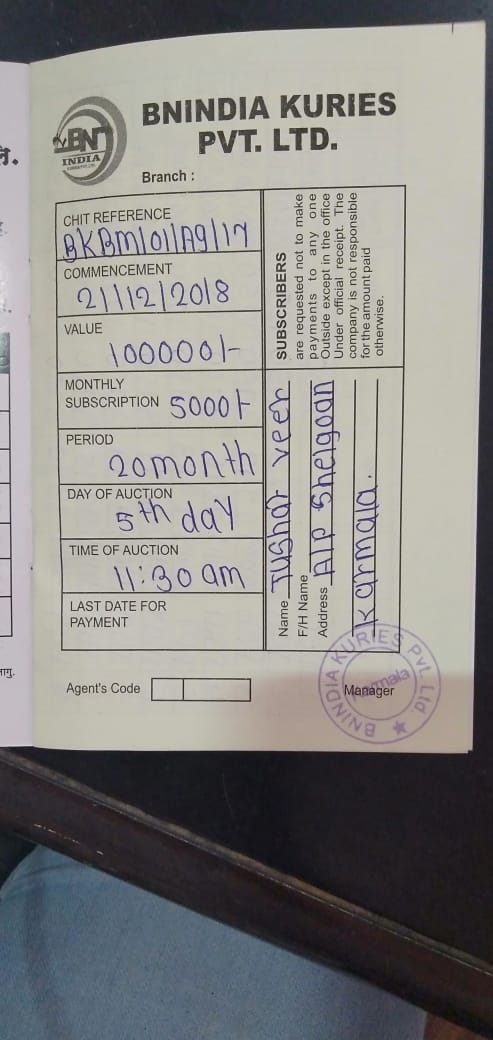 ति.
BNINDIA KURIES
PVT. LTD.
BN
INDIA
Branch :
CHIT REFERENCE
BKBM/01/A9/17
COMMENCEMENT
21/12/2018
VALUE
100000/-
MONTHLY
SUBSCRIPTION 5000/-
PERIOD
20 month
DAY OF AUCTION
5th day
TIME OF AUCTION
11:30 am
LAST DATE FOR
PAYMENT
SUBSCRIBERS
are requested not to make
payments to any one
Outside except in the office
Under official receipt. The
company is not responsible
for the amount paid
otherwise.
Name Tushar veer
F/H Name
Address A/P Shelgoan
Karmala.
Agent's Code
Manager
BNINDIA KURIES Pvt. Ltd.
Karmala